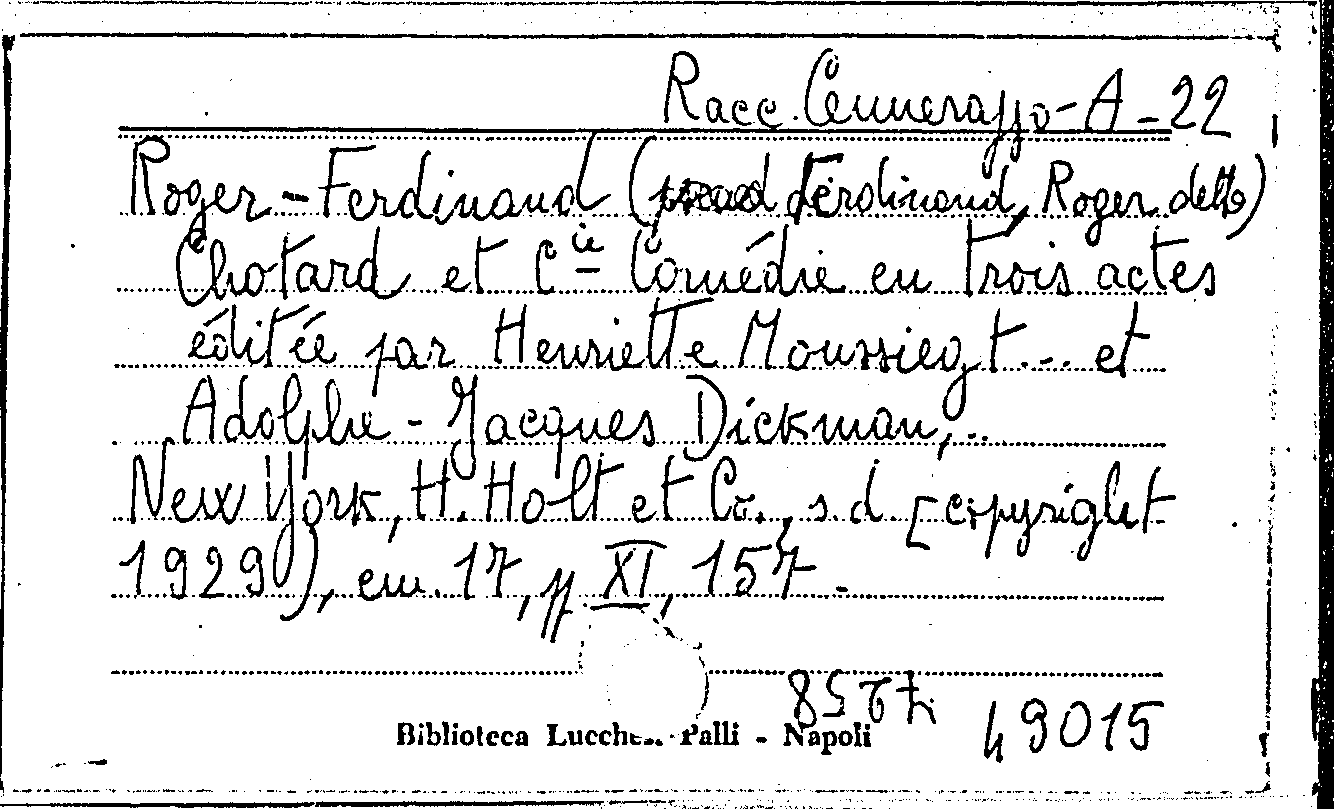 Racc. Cennerazzo - A - 22
Roger-Ferdinand (Ferdinand, Roger detto)
Chotard et Cie Comédie en trois actes
éditée par Henriette Moussiegt ... et
Adolphe-Jacques Dickman, ..
New York, H. Holt et Co., s.d. [copyright
1929), cm. 17, pp XI, 157 -
Biblioteca Lucchesi Palli - Napoli
49015